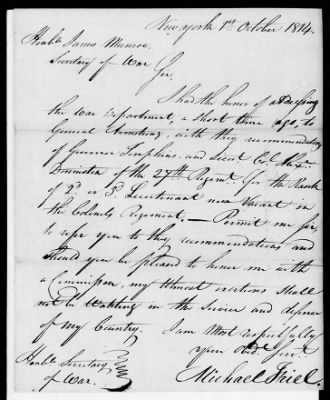 New york 1st October 1814.
Honble James Munroe
Secretary of War
Sir,
I had the honor of addressing
the War Department, a short time ago, to
General Armstrong, with the recommendations
of Governor Tompkins and Lieut Col. Alexr.
Denniston of the 27th Regimt. for the Rank
of 2d. or 3d. Lieutenant now Vacant in
the Colonels Regiment. — Permit me Sir,
to refer you to the recommendations and
should you be pleased to honor me with
a Commission, my utmost exertions shall
not be wanting in the service and defence
of my Country. I am Most respectfully
your Obdt. Servt.
Honble Secretary
of War.
Michael Friel.